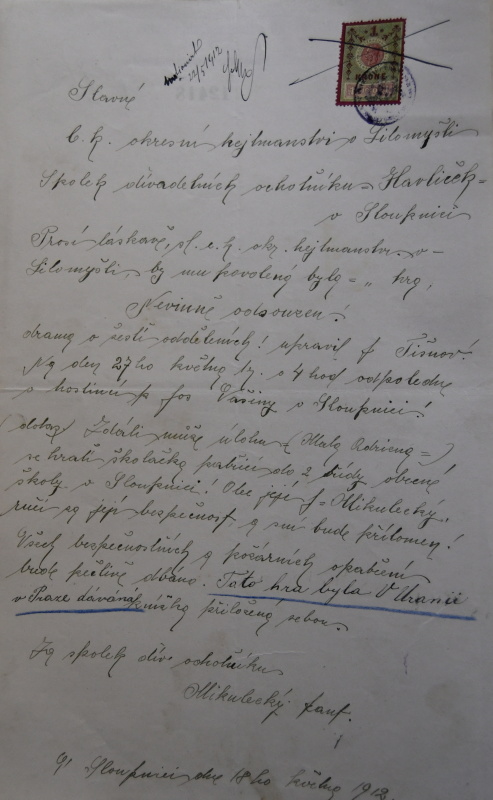 22/5 1912
1
KRONE
Slavné
c. k. okresní hejtmanství v Litomyšli
Spolek divadelních ochotníku "Havlíček"
v Sloupnici
Prosí láskavě, sl. c. k. okr. hejtmanstv. v
Litomyšli, by mu povolena byla " hra,
Nevinně odsouzen!
drama o šesti odděleních! upravil J Tišnov.
Na den 27ho května t.r. o 4 hod odpoledne
v hostinci p Jos Vašiny v Sloupnici!
(dotaz) Zdali může úlohu (Malá Adriena)
se hrati školačka patřící do 2 třídy obecné
školy v Sloupnici! Otec její J Mikulecký
ručí za její bespečnost a sní bude přítomen!
Všech bespečnostních a požárních opatření
bude pečlivě dbáno. Tato hra byla V Uranii
v Praze dávána knížka přiložena sebou.
Za spolek div ochotníku
Mikulecký Janf.
V Sloupnici dne 18ho května 1912